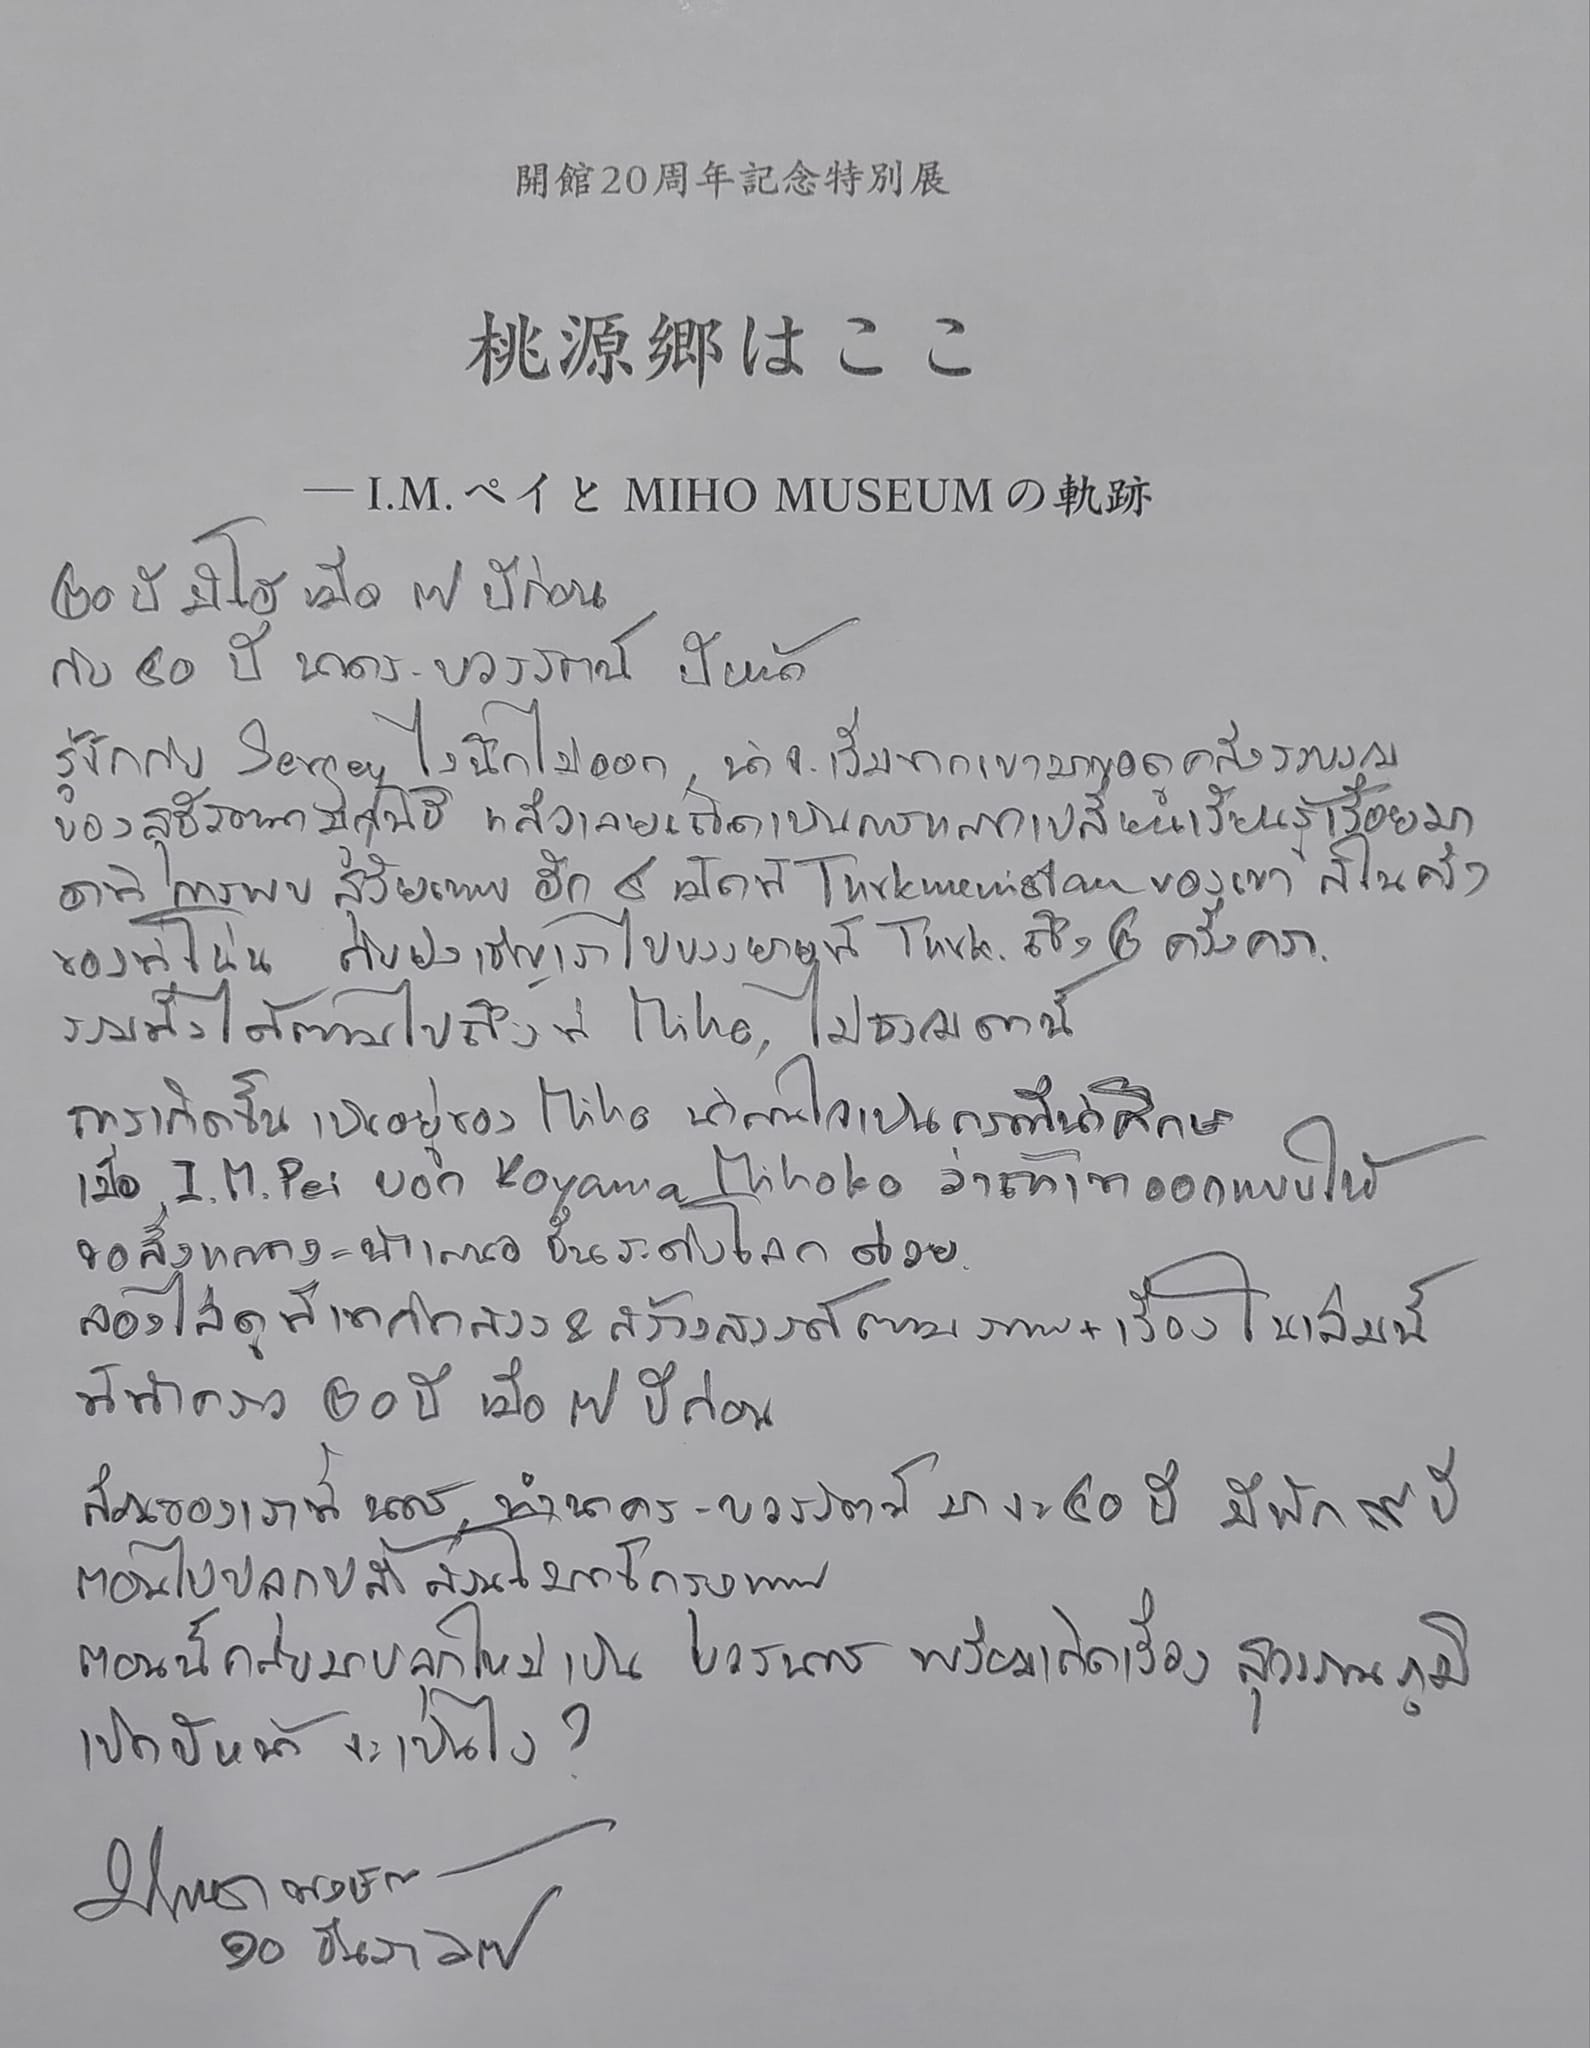 開館20周年記念特別展
桃源郷はここ
—I.M.ペイと MIHO MUSEUMの軌跡
๒๐ ปี มิโฮ เมื่อ ๗ ปีก่อน
กับ ๕๐ ปี นาคร-บวรรัตน์ ปีหน้า
รู้จักกับ Sergey ไงนึกไม่ออก, น่าจะเริ่มจากเขามาขอดู
ของสุธิรัตนามูลนิธิ แล้วเลยเกิดเป็นการแลกเปลี่ยนเรียนรู้เรื่อยมา
อีก ๕ เม็ดที่ Turkmenistan ของเขา
ของที่โน่น เชิญเราไปบรรยายที่ Turk. ถึง ๒ ครั้งครา.
รวมทั้งได้ตามไปถึงที่ Miho, ไม่ธรรมดานี้
การเกิดขึ้น เป็นอยู่ของ Miho น่าสนใจเป็นกรณีน่าศึกษา
เมื่อ I.M.Pei บอก Koyama Mihoko ว่าถ้าเขาออกแบบให้
ขอสิ่งแสดง-นำเสนอ ชั้นระดับโลก ด้วย.
ลองไล่ดูที่เขาคิดสรร & สร้างสรรค์ตามภาพ+เรื่องในเล่มนี้
ที่ทำคราว ๒๐ ปี เมื่อ ๗ ปีก่อน
ส่วนของเราที่ นคร, นาคร-บวรรัตน์ มาจะ ๕๐ ปี มีพัก ๙ ปี
ตอนไปปลุกปล้ำสวนโมกข์กรุงเทพ
ตอนนี้กลับมาปลุกใหม่เป็น บวรนคร พร้อมเกิดเรื่อง สุวรรณภูมิ
เปิดปีหน้า จะเป็นไง ?
๑๐ ธันวา ๖๗